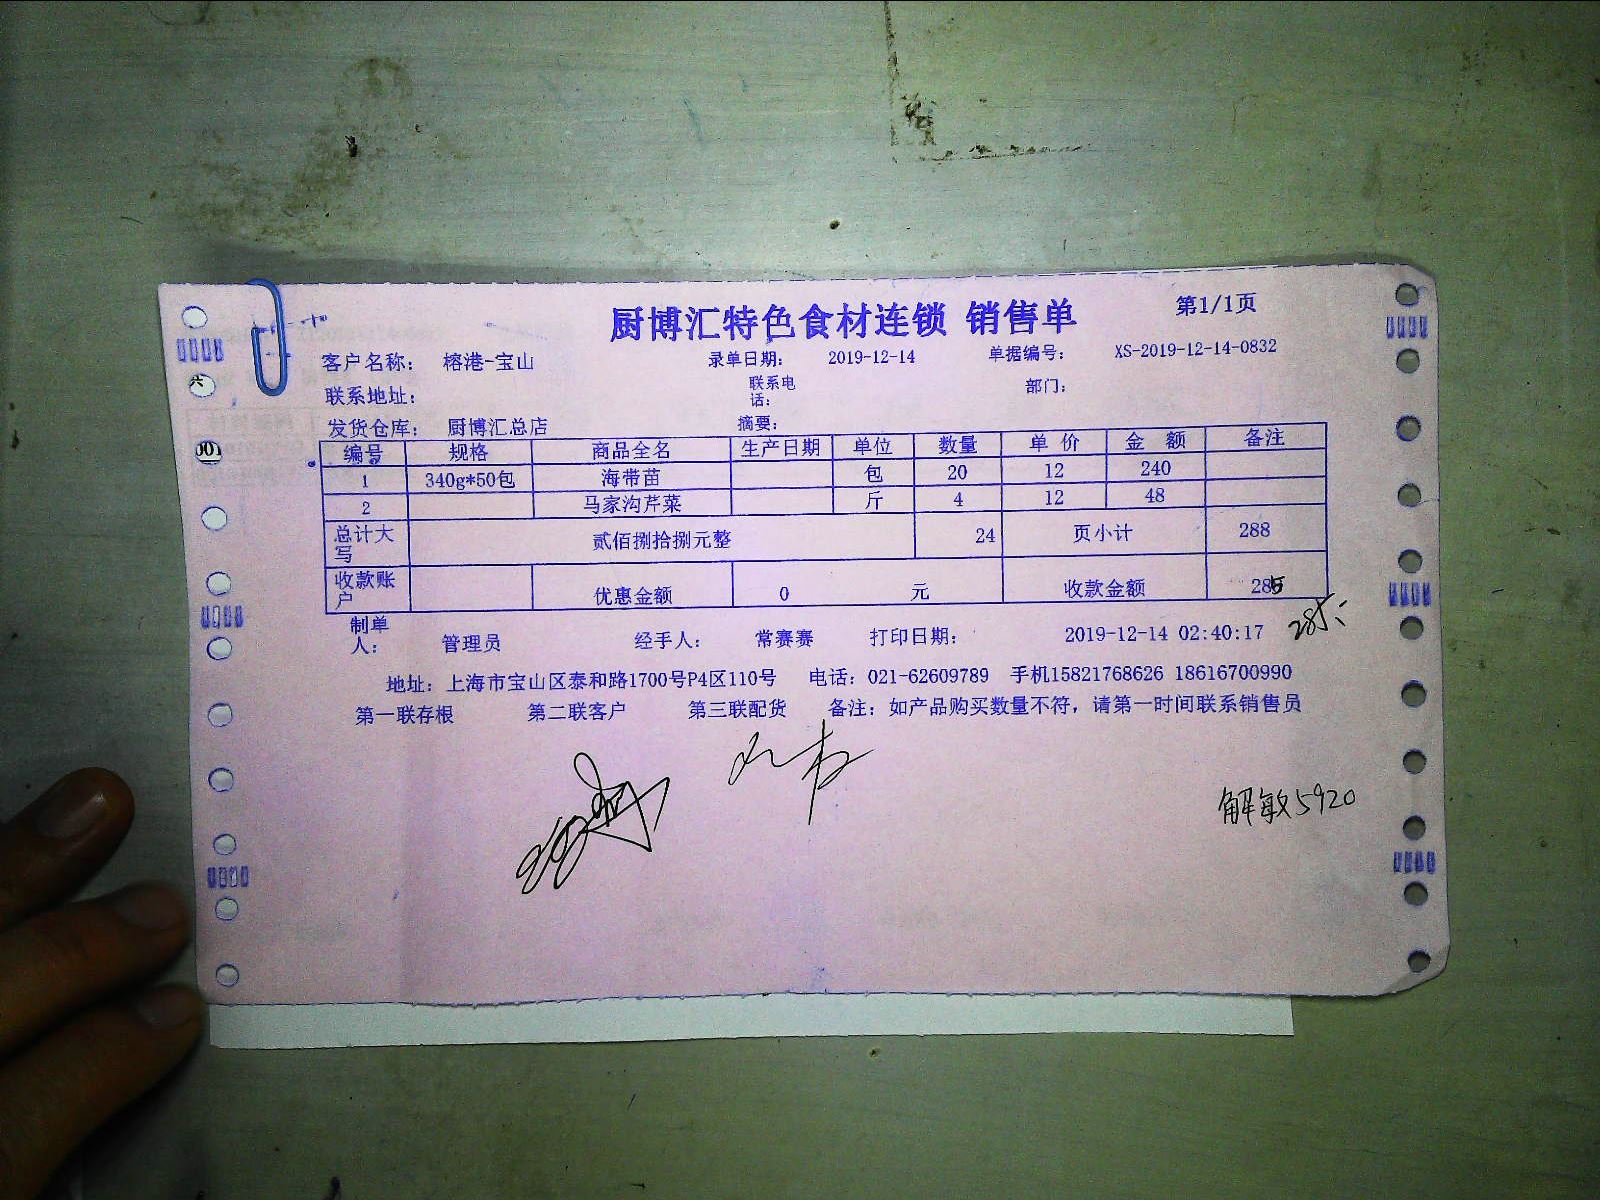 厨博汇特色食材连锁 销售单 第1/1页
客户名称： 榕港-宝山 录单日期： 2019-12-14 单据编号： XS-2019-12-14-0832
联系地址： 联系电话： 部门：
发货仓库： 厨博汇总店 摘要：
编号 规格 商品全名 生产日期 单位 数量 单 价 金 额 备注
1 340g*50包 海带苗 包 20 12 240
2 马家沟芹菜 斤 4 12 48
总计大写 贰佰捌拾捌元整 24 页小计 288
收款账户 优惠金额 0 元 收款金额 285
285
制单人： 管理员 经手人： 常赛赛 打印日期： 2019-12-14 02:40:17
地址：上海市宝山区泰和路1700号P4区110号 电话：021-62609789 手机15821768626 18616700990
第一联存根 第二联客户 第三联配货 备注：如产品购买数量不符，请第一时间联系销售员
解敏5920
六
001